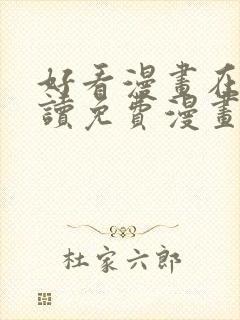 好看漫畫在
讀免費漫畫
杜家六郎